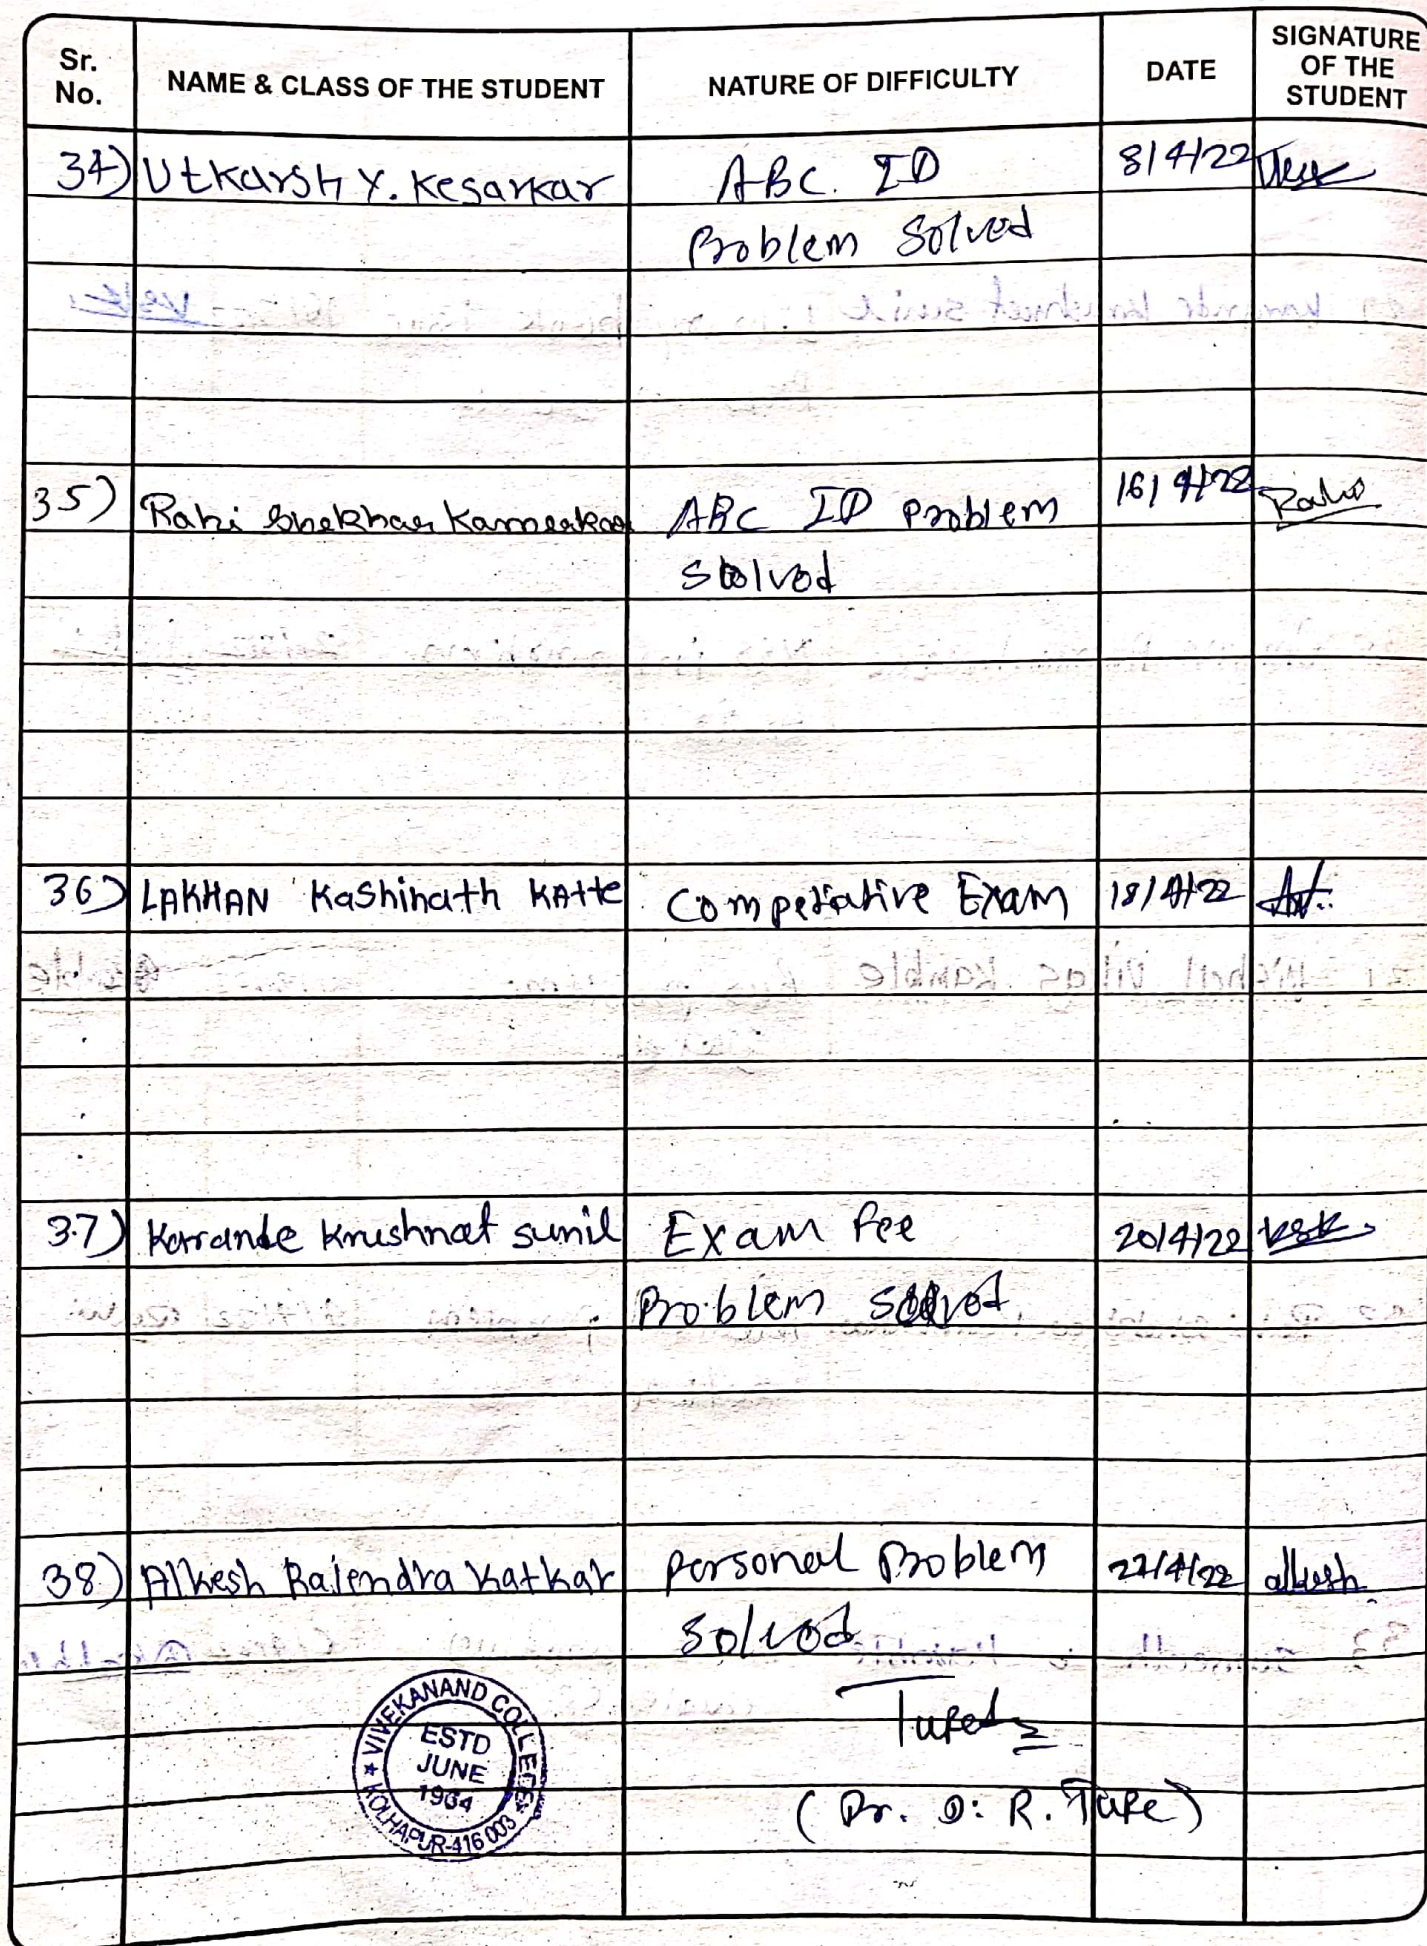 Sr. No. NAME & CLASS OF THE STUDENT NATURE OF DIFFICULTY DATE SIGNATURE OF THE STUDENT
34) Utkarsh Y. Kesarkar ABC. ID 8/4/22
Problem Solved
35) Rahi Shekhar ABC ID Problem 16/4/22 Rahi
Solved
36) LAKHAN Kashinath Katte Competiative Exam 18/4/22
37) Karande Krushnat sunil Exam Fee 20/4/22 KSK.
Problem solved
38) Alkesh Rajendra Katkar Personal Problem 22/4/22 alkesh.
Solved
VIVEKANAND COLLEGE
ESTD
JUNE
1964
KOLHAPUR-416 003
(Dr. D. R. Tupe)